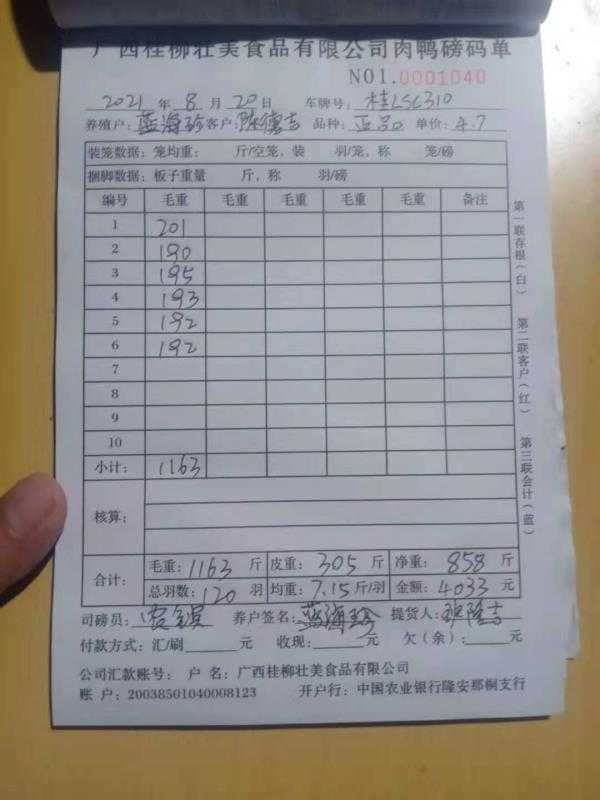 广西桂柳壮美食品有限公司肉鸭磅码单
NO1.0001040
2021 年 8 月 20 日 车牌号: 桂LSL310
养殖户: 蓝海珍 客户: 陈德吉 品种: 正品 单价: 4.7
装笼数据: 笼均重: 斤/空笼, 装 羽/笼, 称 笼/磅
捆脚数据: 板子重量 斤, 称 羽/磅
编号 毛重 毛重 毛重 毛重 毛重 备注
1 201
2 190
3 195
4 193
5 192
6 192
7
8
9
10
小计: 1163
核算:
合计: 毛重: 1163 斤 皮重: 305 斤 净重: 858 斤
总羽数: 120 羽 均重: 7.15 斤/羽 金额: 4033 元
司磅员: 养户签名: 蓝海珍 提货人:
付款方式: 汇/刷 元 收现: 元 欠(余): 元
公司汇款账号: 户 名: 广西桂柳壮美食品有限公司
账 户: 20038501040008123 开户行: 中国农业银行隆安那桐支行
第一联存根(白)
第二联客户(红)
第三联会计(蓝)